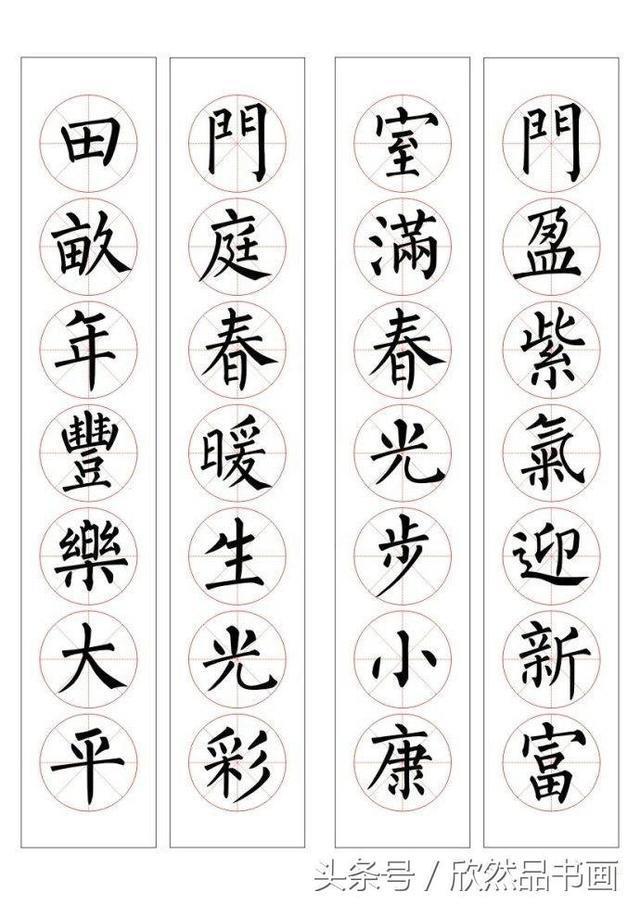 門盈紫氣迎新富
室滿春光步小康
門庭春暖生光彩
田畝年豐樂大平
头条号 / 欣然品书画